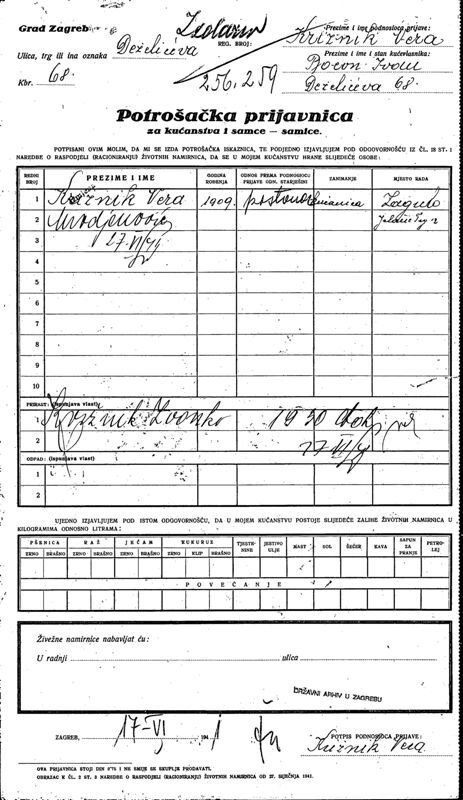 Grad Zagreb
REG. BROJ:
Prezime i ime podnosioca prijave:
Križnik Vera
Ulica, trg ili ina oznaka
Deželićeva
256.259
Prezime i ime i stan kućevlasnika:
Kbr. 68.
Deželićeva 68.
Potrošačka prijavnica
za kućanstva i samce — samice.
POTPISANI OVIM MOLIM, DA MI SE IZDA POTROŠAČKA ISKAZNICA, TE POTJEDNO IZJAVLJUJEM POD ODGOVORNOŠĆU IZ ČL. 18 ST. 1
NAREDBE O RASPODJELI (RACIONIRANJU) ŽIVOTNIH NAMIRNICA, DA SE U MOJEM KUĆANSTVU HRANE SLIJEDEĆE OSOBE:
REDNI BROJ
PREZIME I IME
GODINA ROĐENJA
ODNOS PREMA PODNOSIOCU PRIJAVE ODN. STARJEŠINI
ZANIMANJE
MJESTO RADA
1 Križnik Vera 1909. Zagreb
2
3
4
5
6
7
8
9
10
PRIRAST: (Ispunjava vlast)
1 Križnik Zvonko 1930
2 27 VI/41
OTPAD: (Ispunjava vlast)
1
2
UJEDNO IZJAVLJUJEM POD ISTOM ODGOVORNOŠĆU, DA U MOJEM KUĆANSTVU POSTOJE SLIJEDEĆE ZALIHE ŽIVOTNIH NAMIRNICA U
KILOGRAMIMA ODNOSNO LITRAMA:
PŠENICA RAŽ JEČAM KUKURUZ TJESTENINE JESTIVO ULJE MAST SOL ŠEĆER KAVA SAPUN ZA PRANJE PETROLEJ
ZRNO BRAŠNO ZRNO BRAŠNO ZRNO BRAŠNO ZRNO KLIP BRAŠNO
POVEĆANJE
Živežne namirnice nabavljat ću:
U radnji ulica
DRŽAVNI ARHIV U ZAGREBU
ZAGREB, 17-VI 1941
POTPIS PODNOSIOCA PRIJAVE:
Križnik Vera
OVA PRIJAVNICA STOJI DIN 0'75 I NE SMIJE SE SKUPLJE PRODAVATI.
OBRAZAC K ČL. 2 ST. 3 NAREDBE O RASPODJELI (RACIONIRANJU) ŽIVOTNIH NAMIRNICA OD 27. SIJEČNJA 1941.